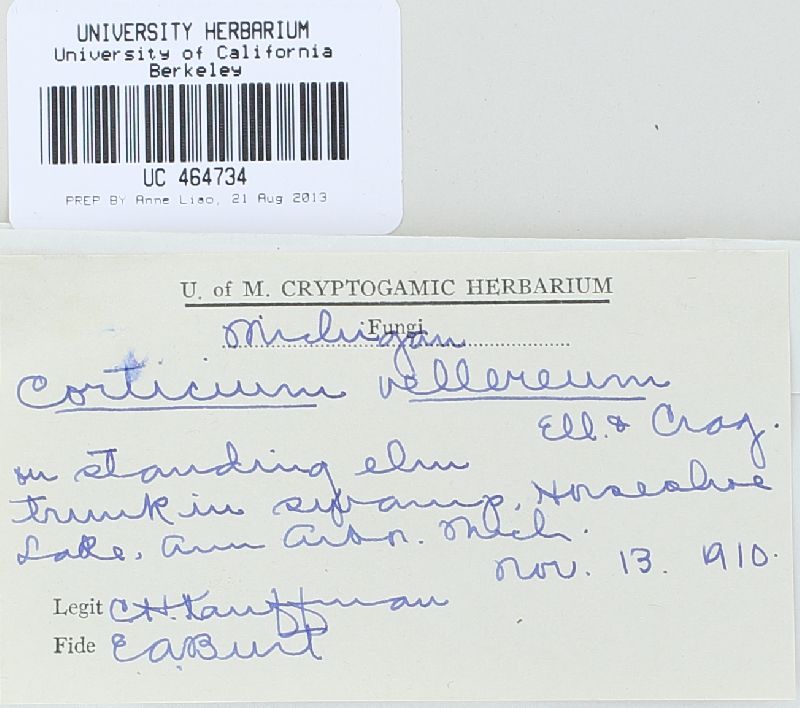 UNIVERSITY HERBARIUM
University of California
Berkeley
UC 464734
PREP BY Anne Liao, 21 Aug 2013
U. of M. CRYPTOGAMIC HERBARIUM
Fungi
Michigan
Corticium vellereum
Ell. & Crag.
on standing elm
trunk in swamp, Horseshoe
Lake, Ann Arbor. Mich.
Nov. 13. 1910.
Legit C.H. Kauffman
Fide E.A. Burt